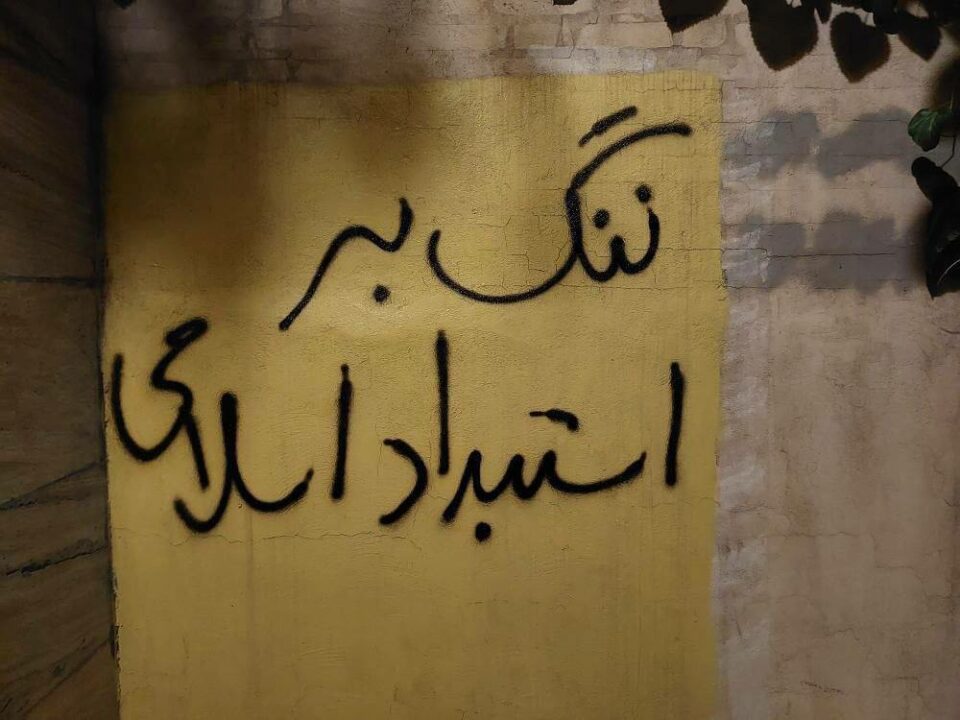 ننگ بر
استبداد اسلامی